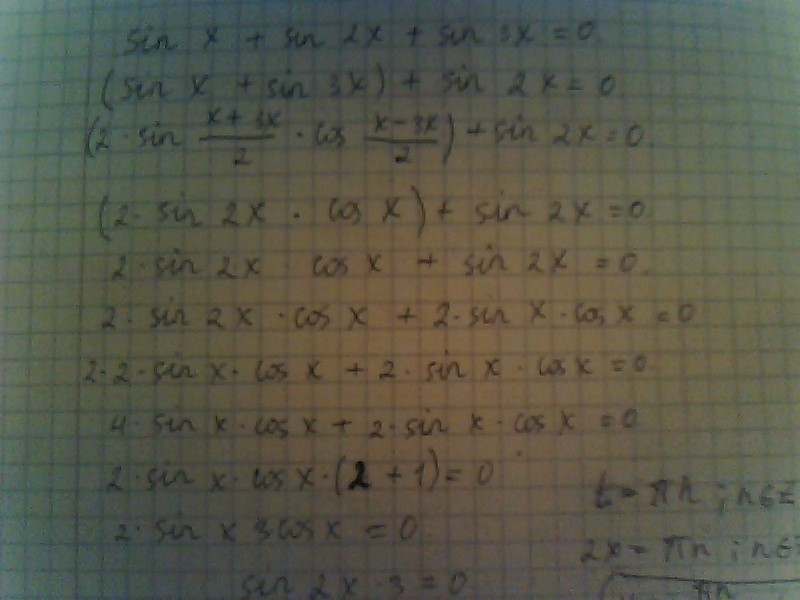 sin x + sin 2x + sin 3x = 0.
(sin x + sin 3x) + sin 2x = 0.
(2 · sin (x + 3x)/2 · cos (x - 3x)/2) + sin 2x = 0.
(2 · sin 2x · cos x) + sin 2x = 0.
2 · sin 2x cos x + sin 2x = 0.
2 · sin 2x · cos x + 2 · sin x · cos x = 0
2 · 2 · sin x · cos x + 2 · sin x · cos x = 0
4 · sin x · cos x + 2 · sin x · cos x = 0
2 · sin x · cos x · (2 + 1) = 0
2 · sin x 3 cos x = 0
sin 2x · 3 = 0
t = πn ; n ∈ Z
2x = πn ; n ∈ Z
πn